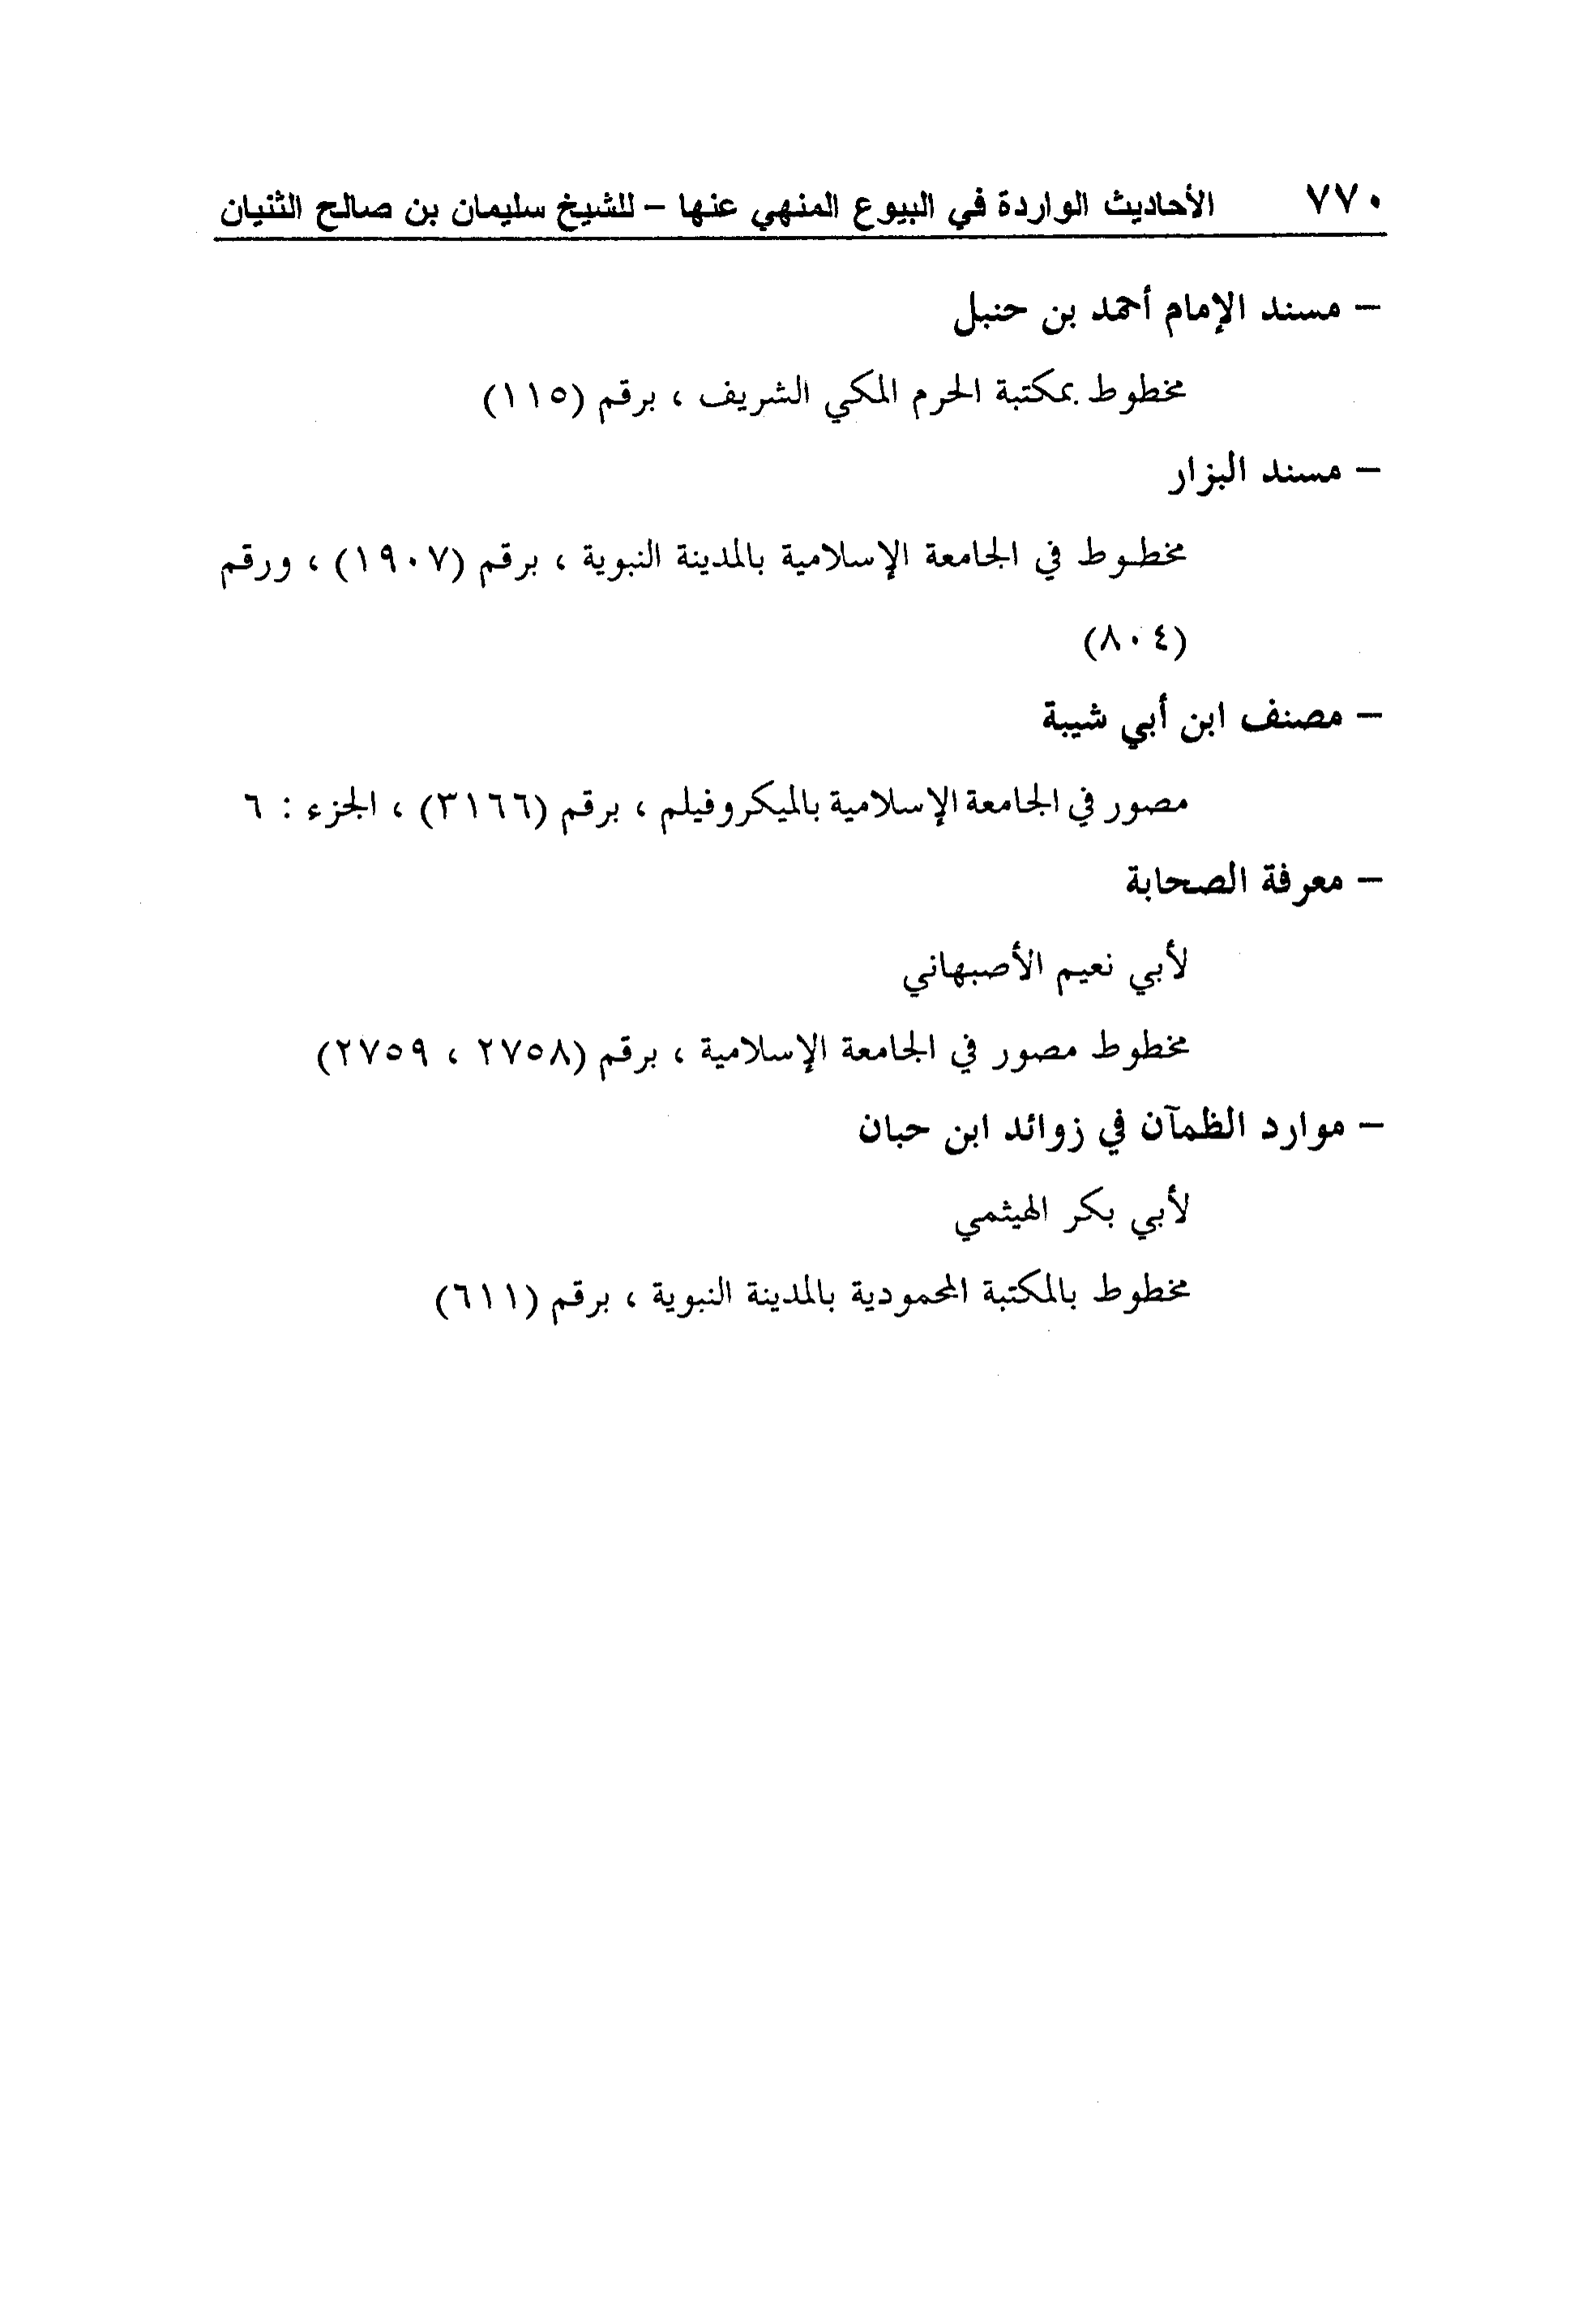 ٧٧٠ الأحاديث الواردة في البيوع المنهي عنها – للشيخ سليمان بن صالح الثنيان
– مسند الإمام أحمد بن حنبل
مخطوط بمكتبة الحرم المكي الشريف ، برقم (١١٥)
– مسند البزار
مخطوط في الجامعة الإسلامية بالمدينة النبوية ، برقم (١٩٠٧) ، ورقم
(٨٠٤)
– مصنف ابن أبي شيبة
مصور في الجامعة الإسلامية بالميكروفيلم ، برقم (٣١٦٦) ، الجزء : ٦
– معرفة الصحابة
لأبي نعيم الأصبهاني
مخطوط مصور في الجامعة الإسلامية ، برقم (٢٧٥٨ ، ٢٧٥٩)
– موارد الظمآن في زوائد ابن حبان
لأبي بكر الهيثمي
مخطوط بالمكتبة المحمودية بالمدينة النبوية ، برقم (٦١١)